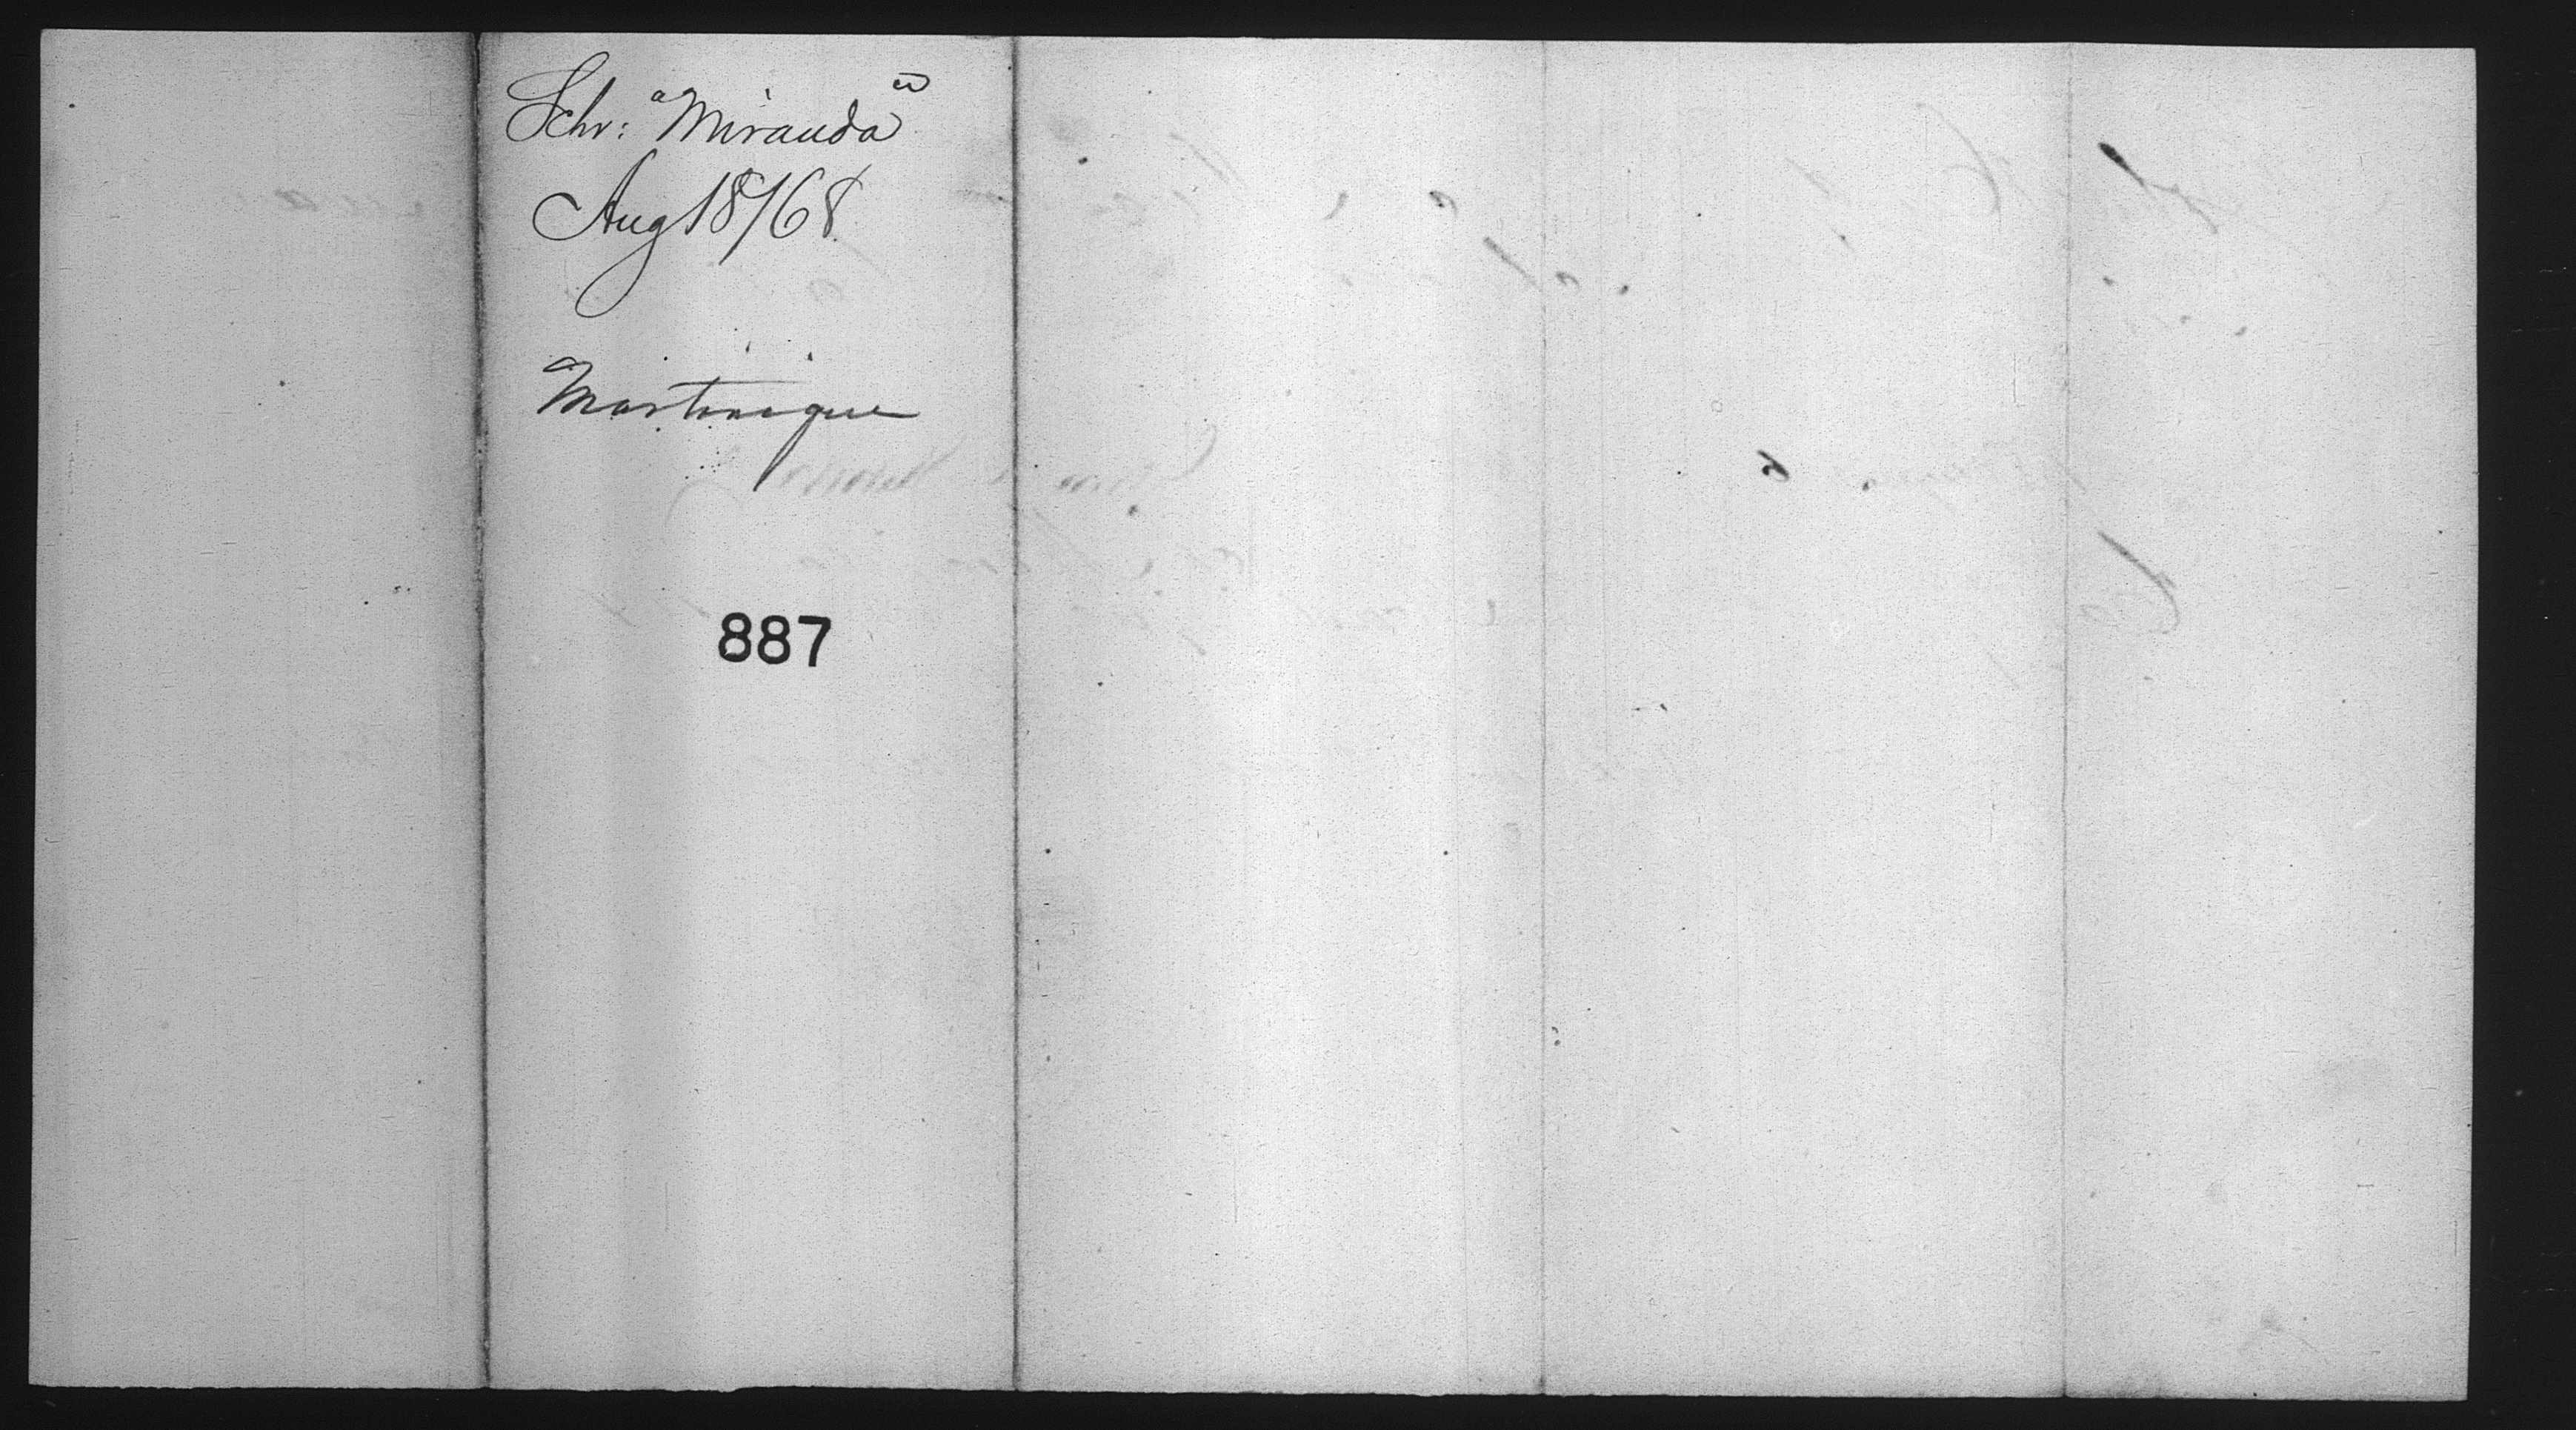 Schr: "Miranda"
Aug 18/68
Martinique
887